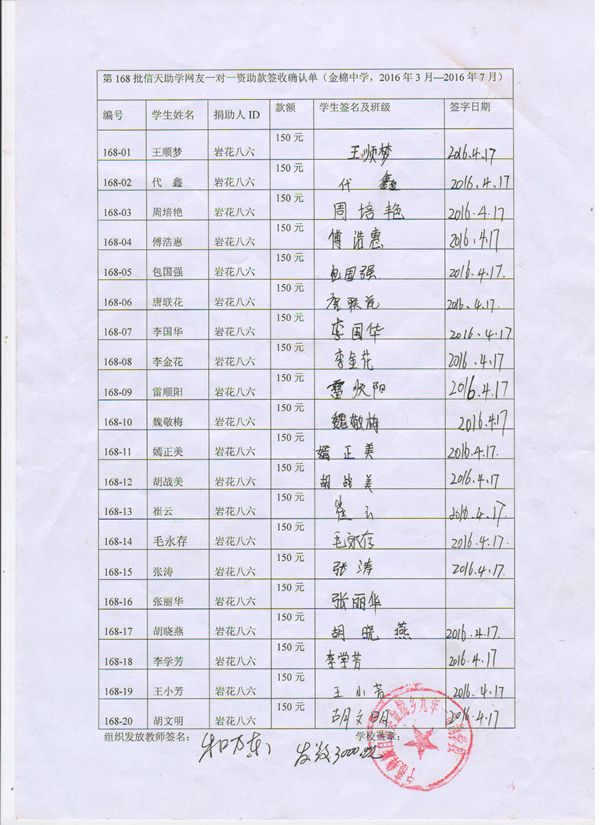 第168批信天助学网友一对一资助款签收确认单（金棉中学，2016年3月—2016年7月）
编号 学生姓名 捐助人ID 款额 学生签名及班级 签字日期
168-01 王顺梦 岩花八六 150元 王顺梦 2016.4.17
168-02 代 鑫 岩花八六 150元 代 鑫 2016.4.17
168-03 周培艳 岩花八六 150元 周培艳 2016.4.17
168-04 傅浩惠 岩花八六 150元 傅浩惠 2016.4.17
168-05 包国强 岩花八六 150元 包国强 2016.4.17.
168-06 唐联花 岩花八六 150元 唐联花 2016.4.17.
168-07 李国华 岩花八六 150元 李国华 2016.4.17
168-08 李金花 岩花八六 150元 李金花 2016.4.17
168-09 雷顺阳 岩花八六 150元 雷顺阳 2016.4.17
168-10 魏敬梅 岩花八六 150元 魏敬梅 2016.4.17
168-11 嫣正美 岩花八六 150元 嫣正美 2016.4.17.
168-12 胡战美 岩花八六 150元 胡战美 2016.4.17
168-13 崔云 岩花八六 150元 崔云 2016.4.17.
168-14 毛永存 岩花八六 150元 毛永存 2016.4.17
168-15 张涛 岩花八六 150元 张涛 2016.4.17
168-16 张丽华 岩花八六 150元 张丽华
168-17 胡晓燕 岩花八六 150元 胡晓燕 2016.4.17.
168-18 李学芳 岩花八六 150元 李学芳 2016.4.17
168-19 王小芳 岩花八六 150元 王小芳 2016.4.17
168-20 胡文明 岩花八六 150元 胡文明 2016.4.17
组织发放教师签名： 发放3000元 学校盖章：